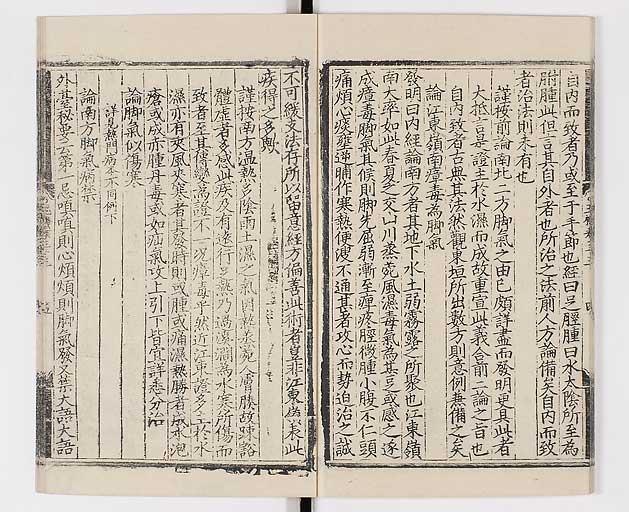 自内而致者乃或至于手節也經曰足脛腫曰水太陰所至為
胕腫此但言其自外者也所治之法前人方論備矣自内而致
者治法則未有也
謹按前論南北二方脚氣之由已頗詳盡而發明更具此者
大抵言其證主於水濕而成故重宣此義合前二論之旨也
自内致者古無其法然觀東垣所出數方則意例兼備之矣
論江東嶺南瘴毒為脚氣
發明曰内經論南方者其地下水土弱霧露之所聚也江東嶺
南大率如此春夏之交山川蒸氣風濕毒氣為甚足或感之遂
成瘴毒脚氣其候則脚先屈弱漸至痺疼脛微腫小腹不仁頭
痛煩心痰壅逆晡作寒熱便溲不通甚者攻心而勢迫治之誠
不可緩支法存所以留意經方偏善此術者豈非江東嶺表此
疾得之多歟
謹按南方溫熱多陰雨土濕之氣因熱蒸人膚腠故疎豁
體虛者多感此疾及有遠行足熱乃過溪澗為水寒所傷而
致者至其傳變為證不一况瘴毒乎然近江東證多主於水
濕亦有夾風夾寒者其發時則或腫或痛濕熱勝者成水泡
瘡或成赤腫丹毒或如疝氣攻上引下皆宜詳悉分治
論脚氣似傷寒
詳見熱門病本不同例下
論南方脚氣病禁
外臺秘要云第一忌嗔嗔則心煩煩則脚氣發又禁大語大語